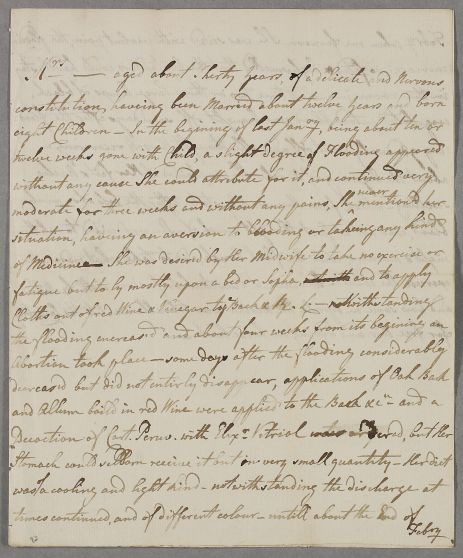 Mrs —— aged about therty years, of a delicate and Nervous
constitution, haveing been Married about twelve years and born
eight Children – In the begining of last Janry, being about ten or
twelve weeks gone with Child, a slight degree of Flooding appeared
without any cause She could attribute for it, and continued very
moderate for three weeks and without any pains, She never mentiond her
situation, haveing an aversion to blooding or takeing any kind
of Medicine – She was desired by Her Midwife to take no exercise or
fatigue but to ly mostly upon a Bed or Sopha, and to apply
Cloths out of red Wine & Vinegar to Back &c &c – notwithstanding
the flooding encreasd and about four weeks from its begining an
abortion took place – some days after the flooding considerably
decreased but did not entirly disappear, applications of Oak Bark
and Allum boild in red Wine were applied to the Back &c – and a
Decoction of Cort. Peruv. with Elixr Vitriol ordered, but Her
Stomach could seldom receive it but in very small quantity – Her diet
was of a cooling and light kind – notwithstanding the discharge at
times continued, and of different colour – untill about the End of
Febry